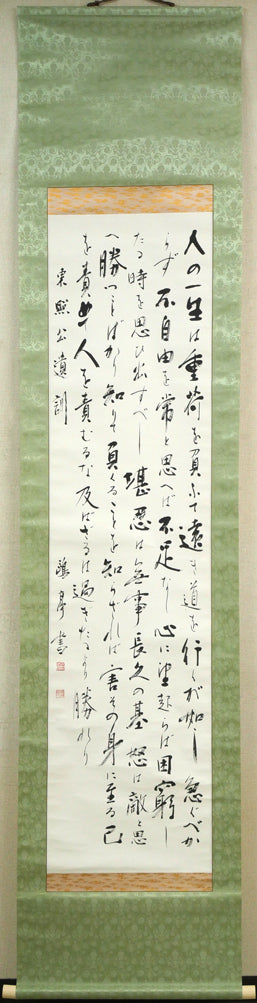 人の一生は重荷を負ふて遠き道を行くが如し急ぐべか
らず不自由を常と思へば不足なし心に望起らば困窮し
たる時を思ひ出すべし堪忍は無事長久の基怒は敵と思
へ勝つことばかり知りて負くることを知らざれば害その身に至る己
を責めて人を責むるな及ばざるは過ぎたるより勝れり
東照公遺訓
書